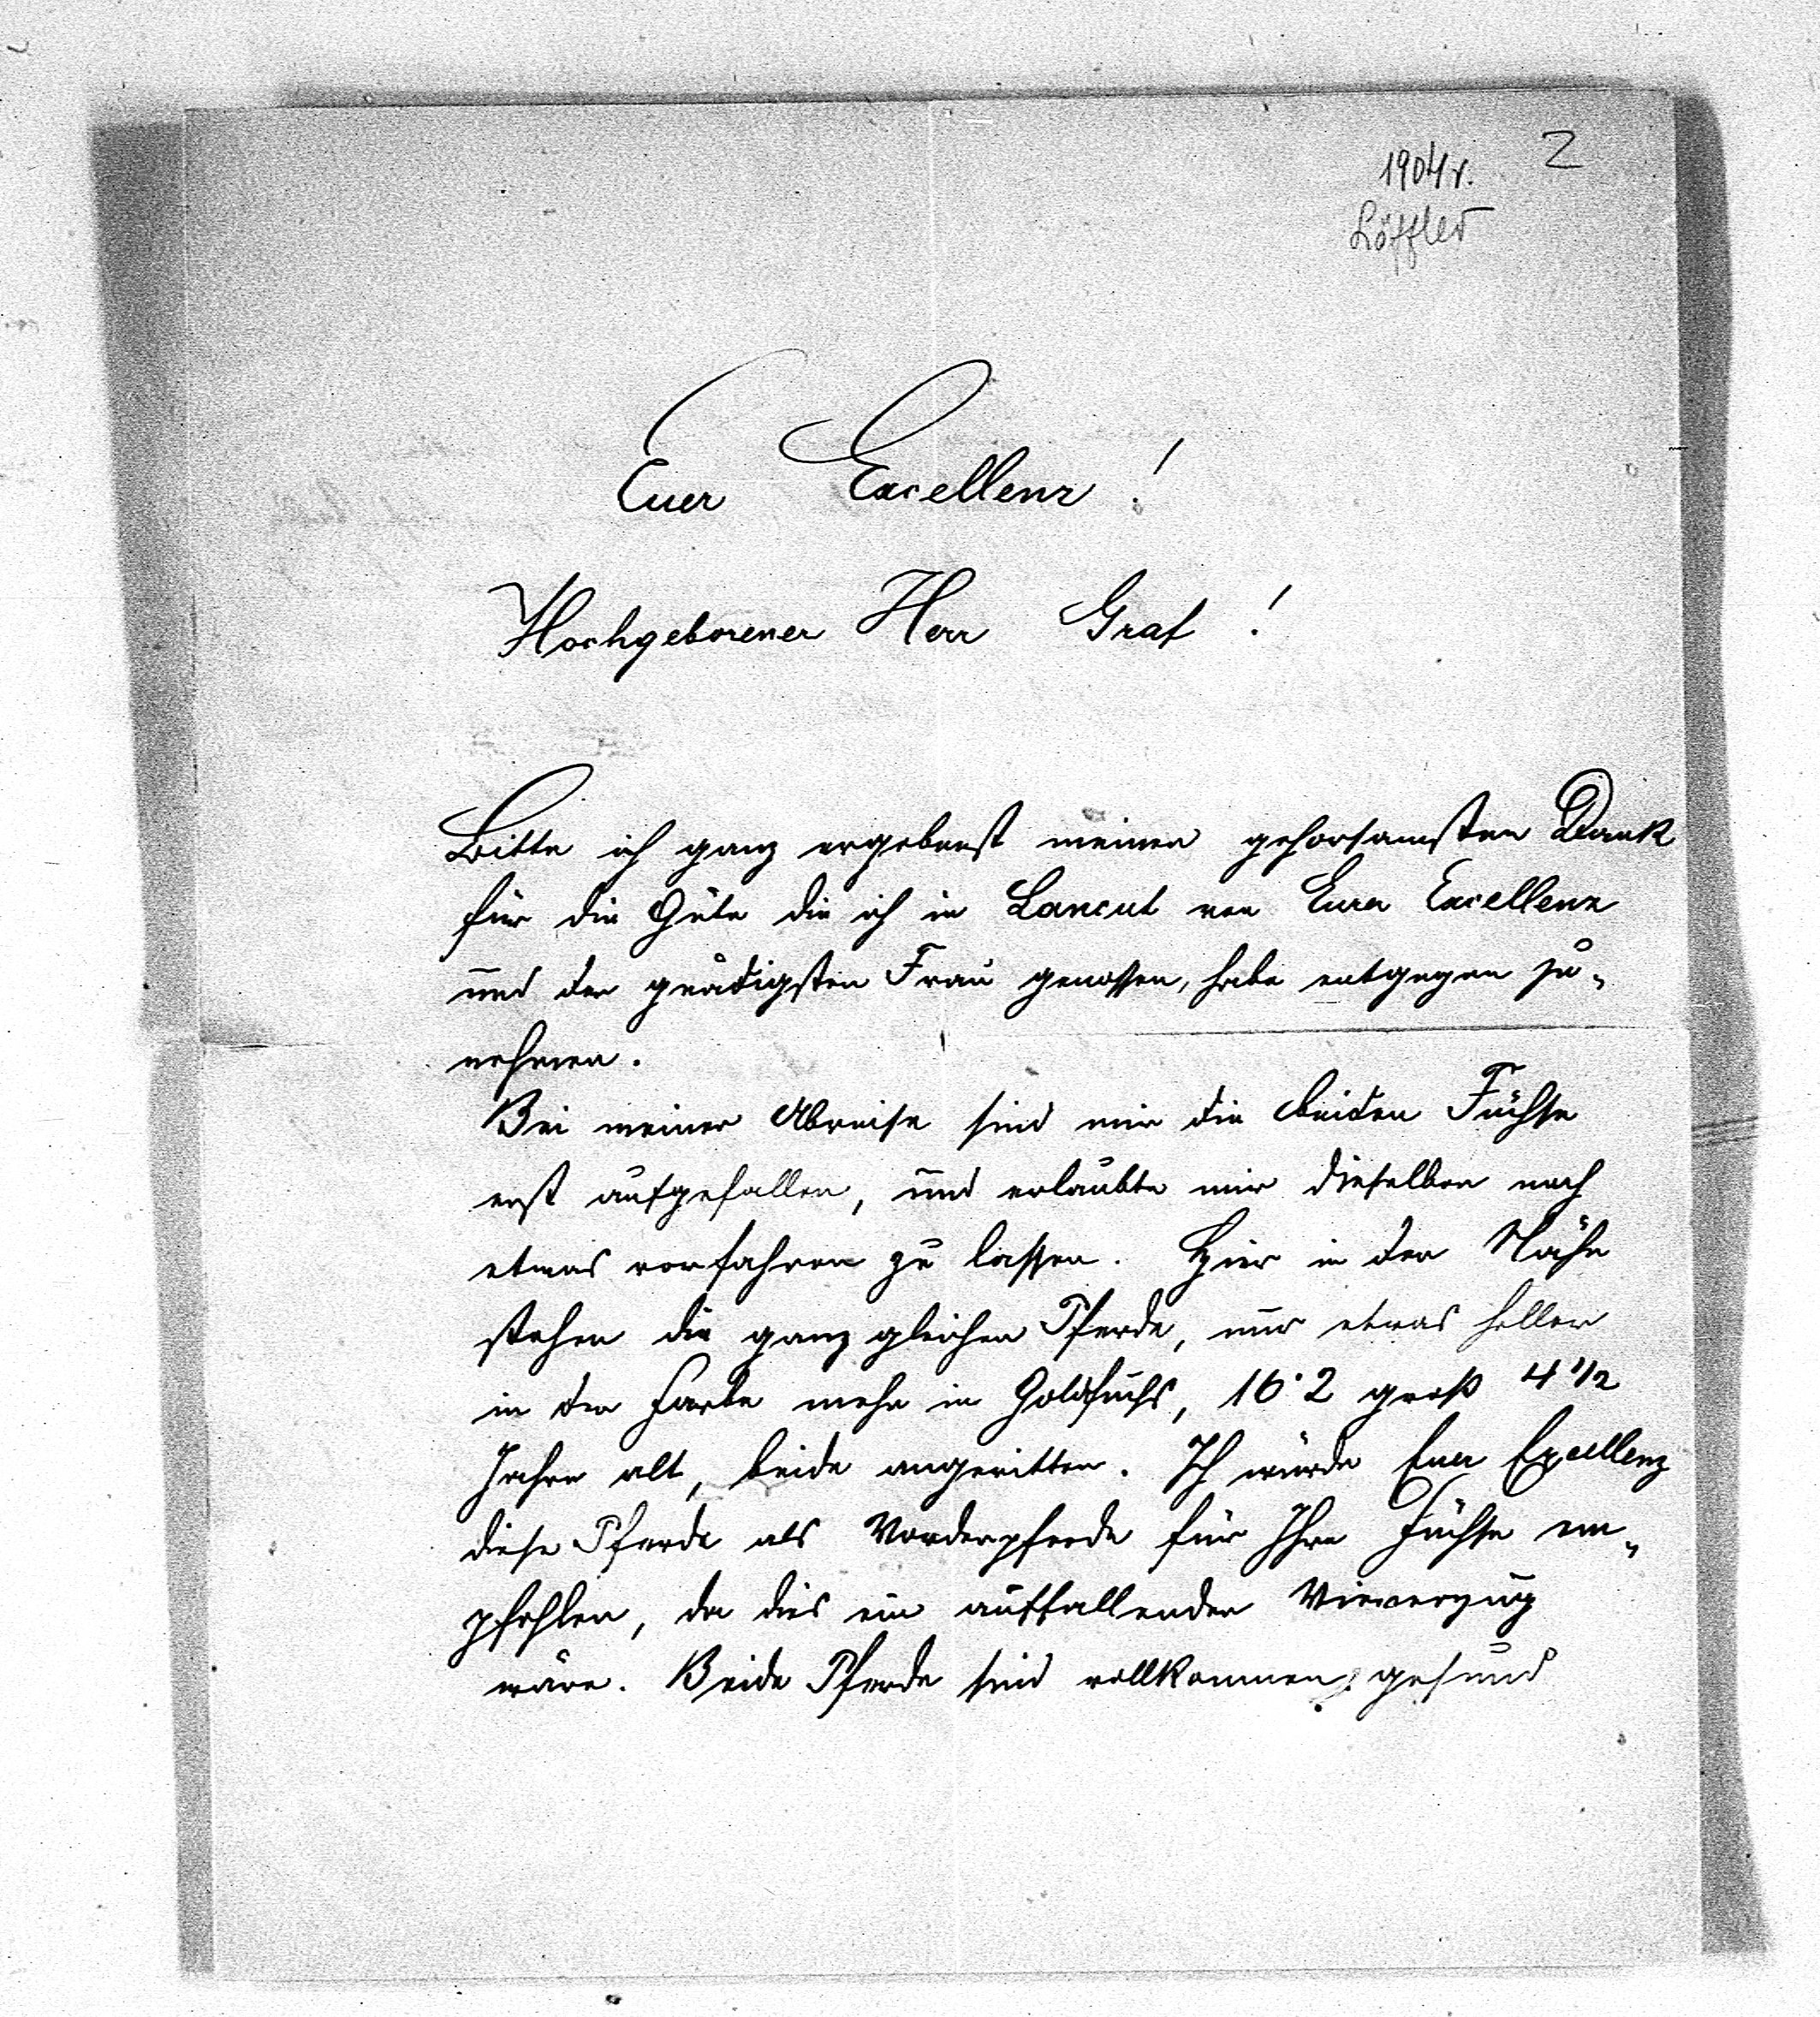 1904 r. 2
Löffler
Euer Excellenz!
Hochgeborener Herr Graf!
Bitte ich ganz ergebenst meinen gehorsamsten Dank
für die Güte die ich in Lancut von Eurer Excellenz
und der gnädigsten Frau genossen, habe entgegen zu-
nehmen.
Bei meiner Abreise sind mir die beiden Füchse
erst aufgefallen, und erlaubte mir dieselben noch
etwas vorfahren zu lassen. Hier in der Nähe
stehen die ganz gleichen Pferde, nur etwas heller
in der Farbe mehr in Goldfuchs, 16·2 groß 4 1/2
Jahre alt, beide angeritten. Ich würde Euer Excellenz
diese Pferde als Vorderpferde für Ihre Füchse em-
pfehlen, da dies ein auffallender Viererzug
wäre. Beide Pferde sind vollkommen gesund